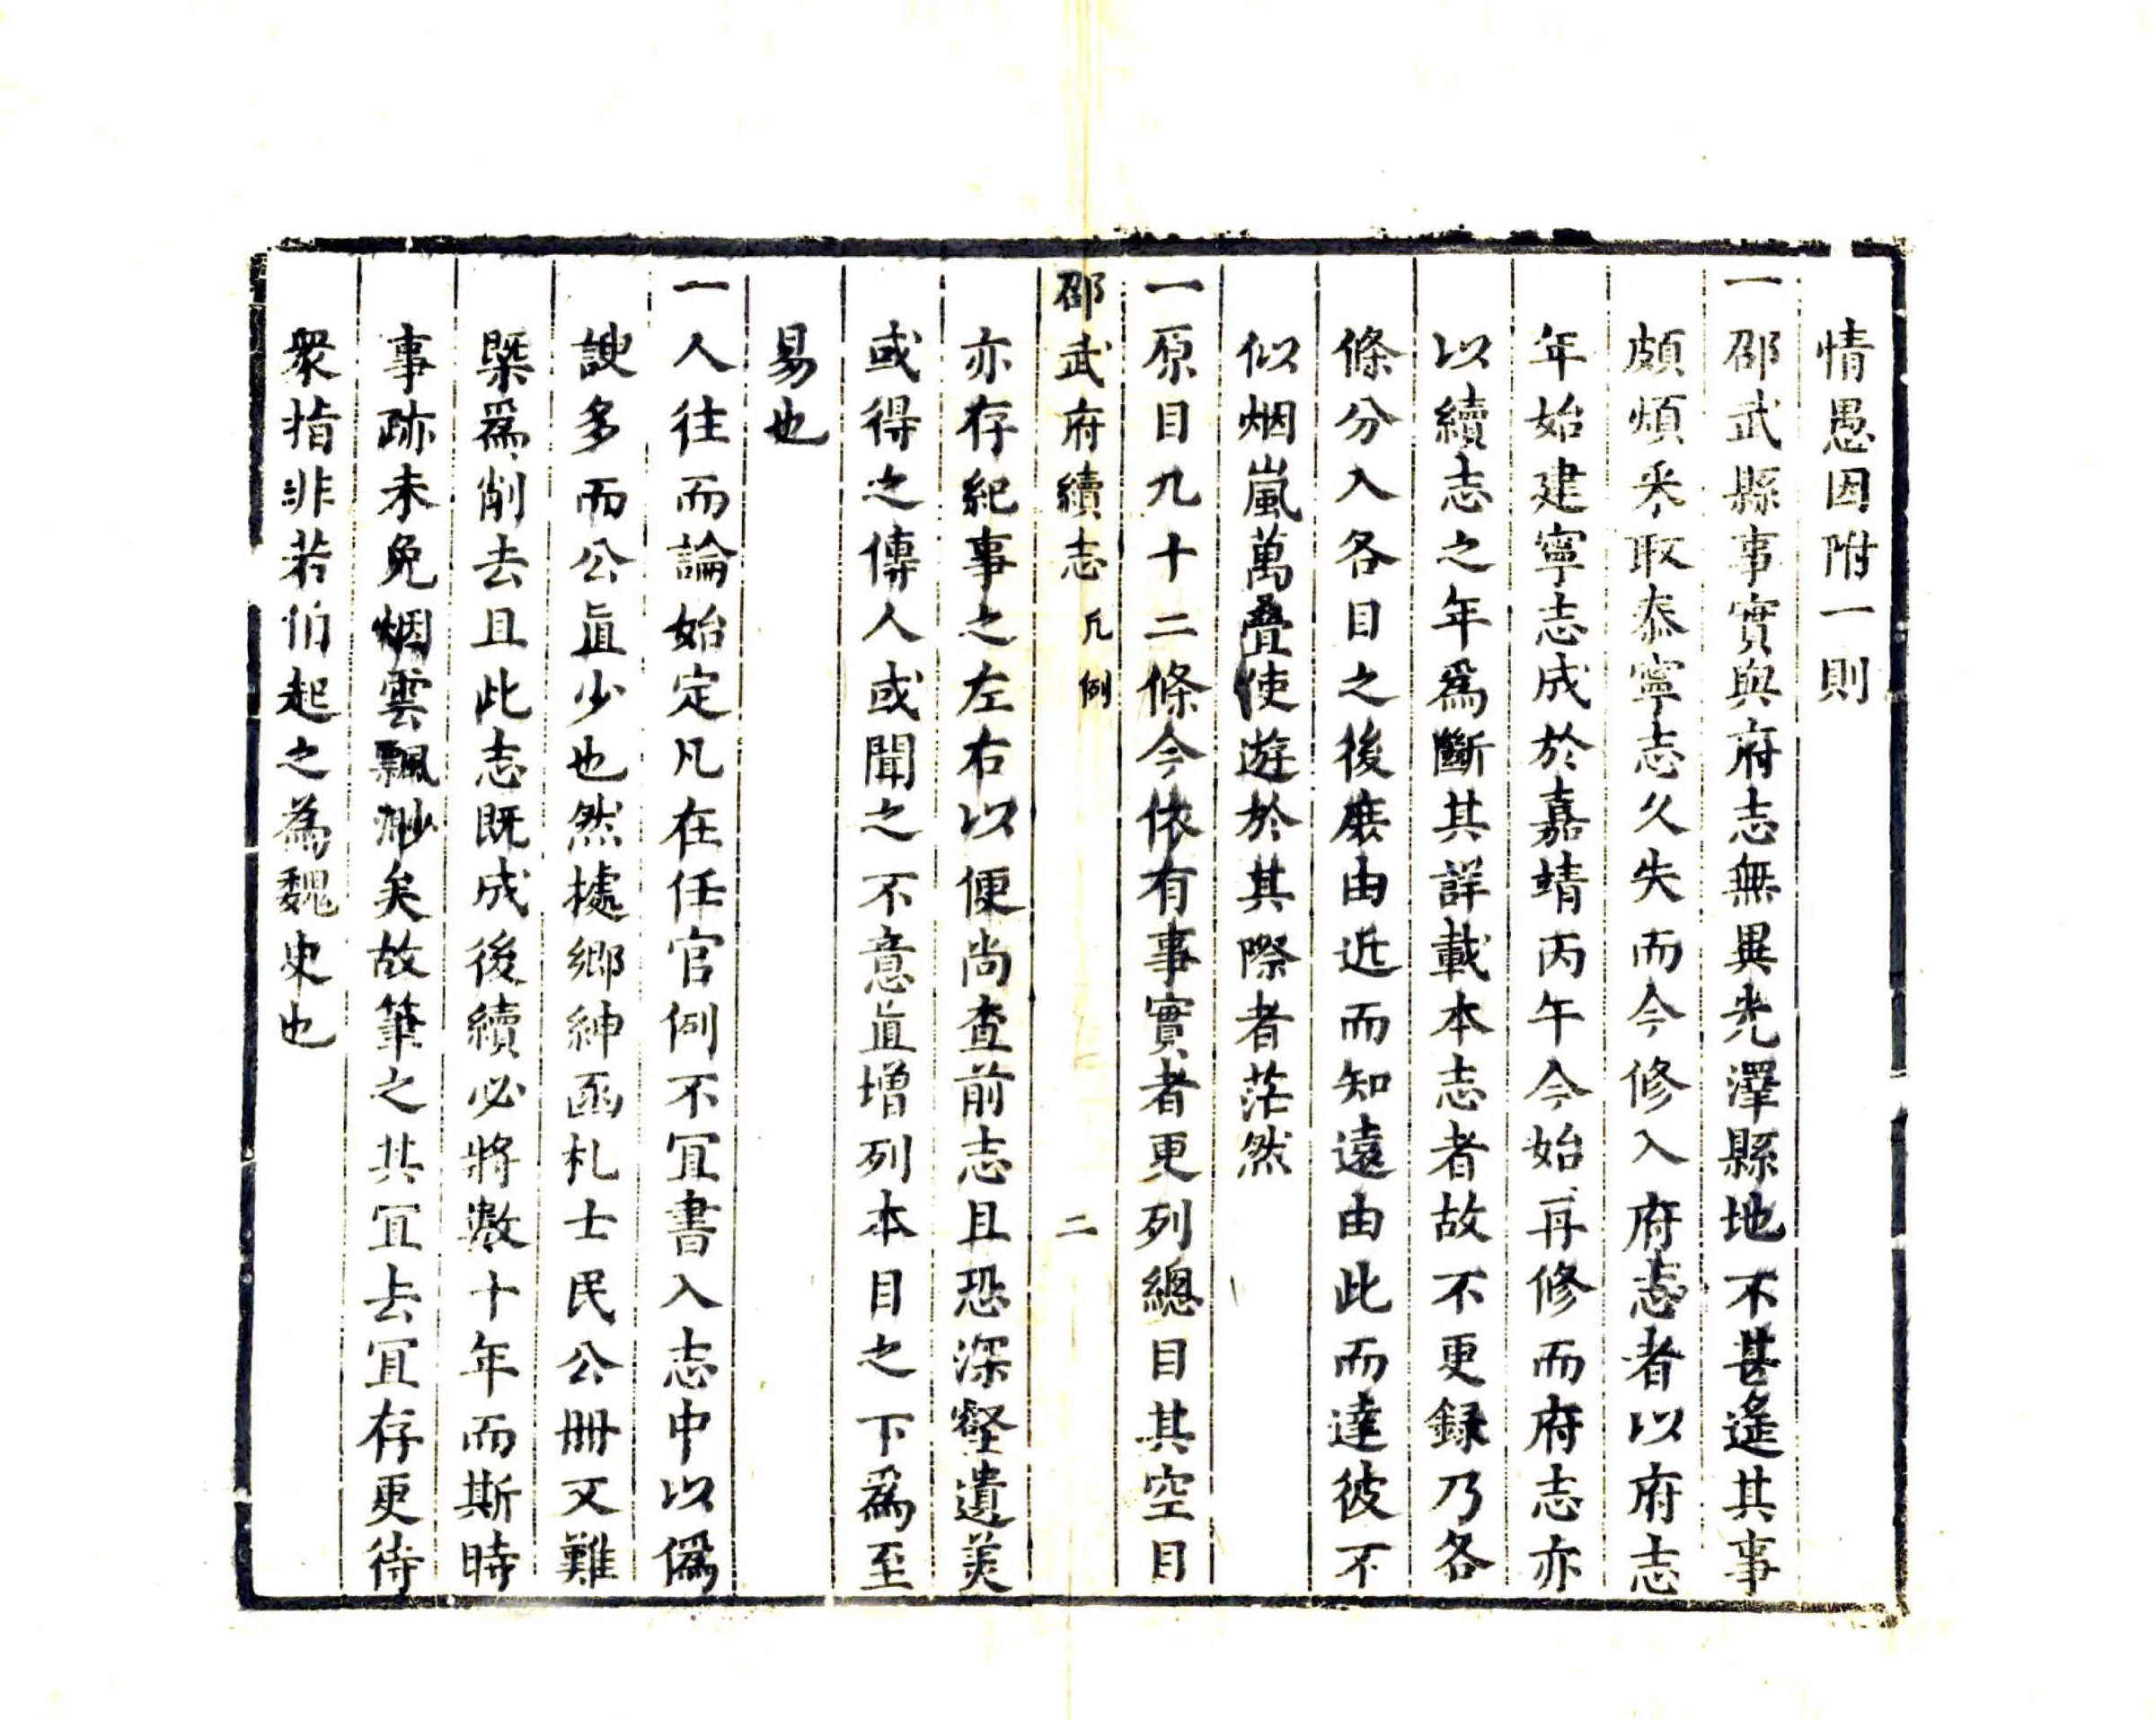 情愚因附一則
一邵武縣事實與府志無異光澤縣地不甚遙其事
頗煩釆取泰寧志久失而今修入府志者以府志
年始建寧志成於嘉靖丙午今始再修而府志亦
以續志之年爲斷其詳載本志者故不更録乃各
條分入各目之後庶由近而知遠由此而達彼不
似烟嵐萬疊使遊於其際者茫然
一原目九十二條今依有事實者更列總目其空目
邵武府續志 凡例 二
亦存紀事之左右以便尚查前志且恐深壑遺美
或得之傳人或聞之不意眞增列本目之下爲至
易也
一人往而論始定凡在任官例不冝書入志中以僞
諛多而公眞少也然據鄉紳函札士民公冊又難
槩爲削去且此志既成後續必將數十年而斯時
事跡未免烟雲飄渺矣故筆之其冝去冝存更待
衆指非若伯起之為魏史也